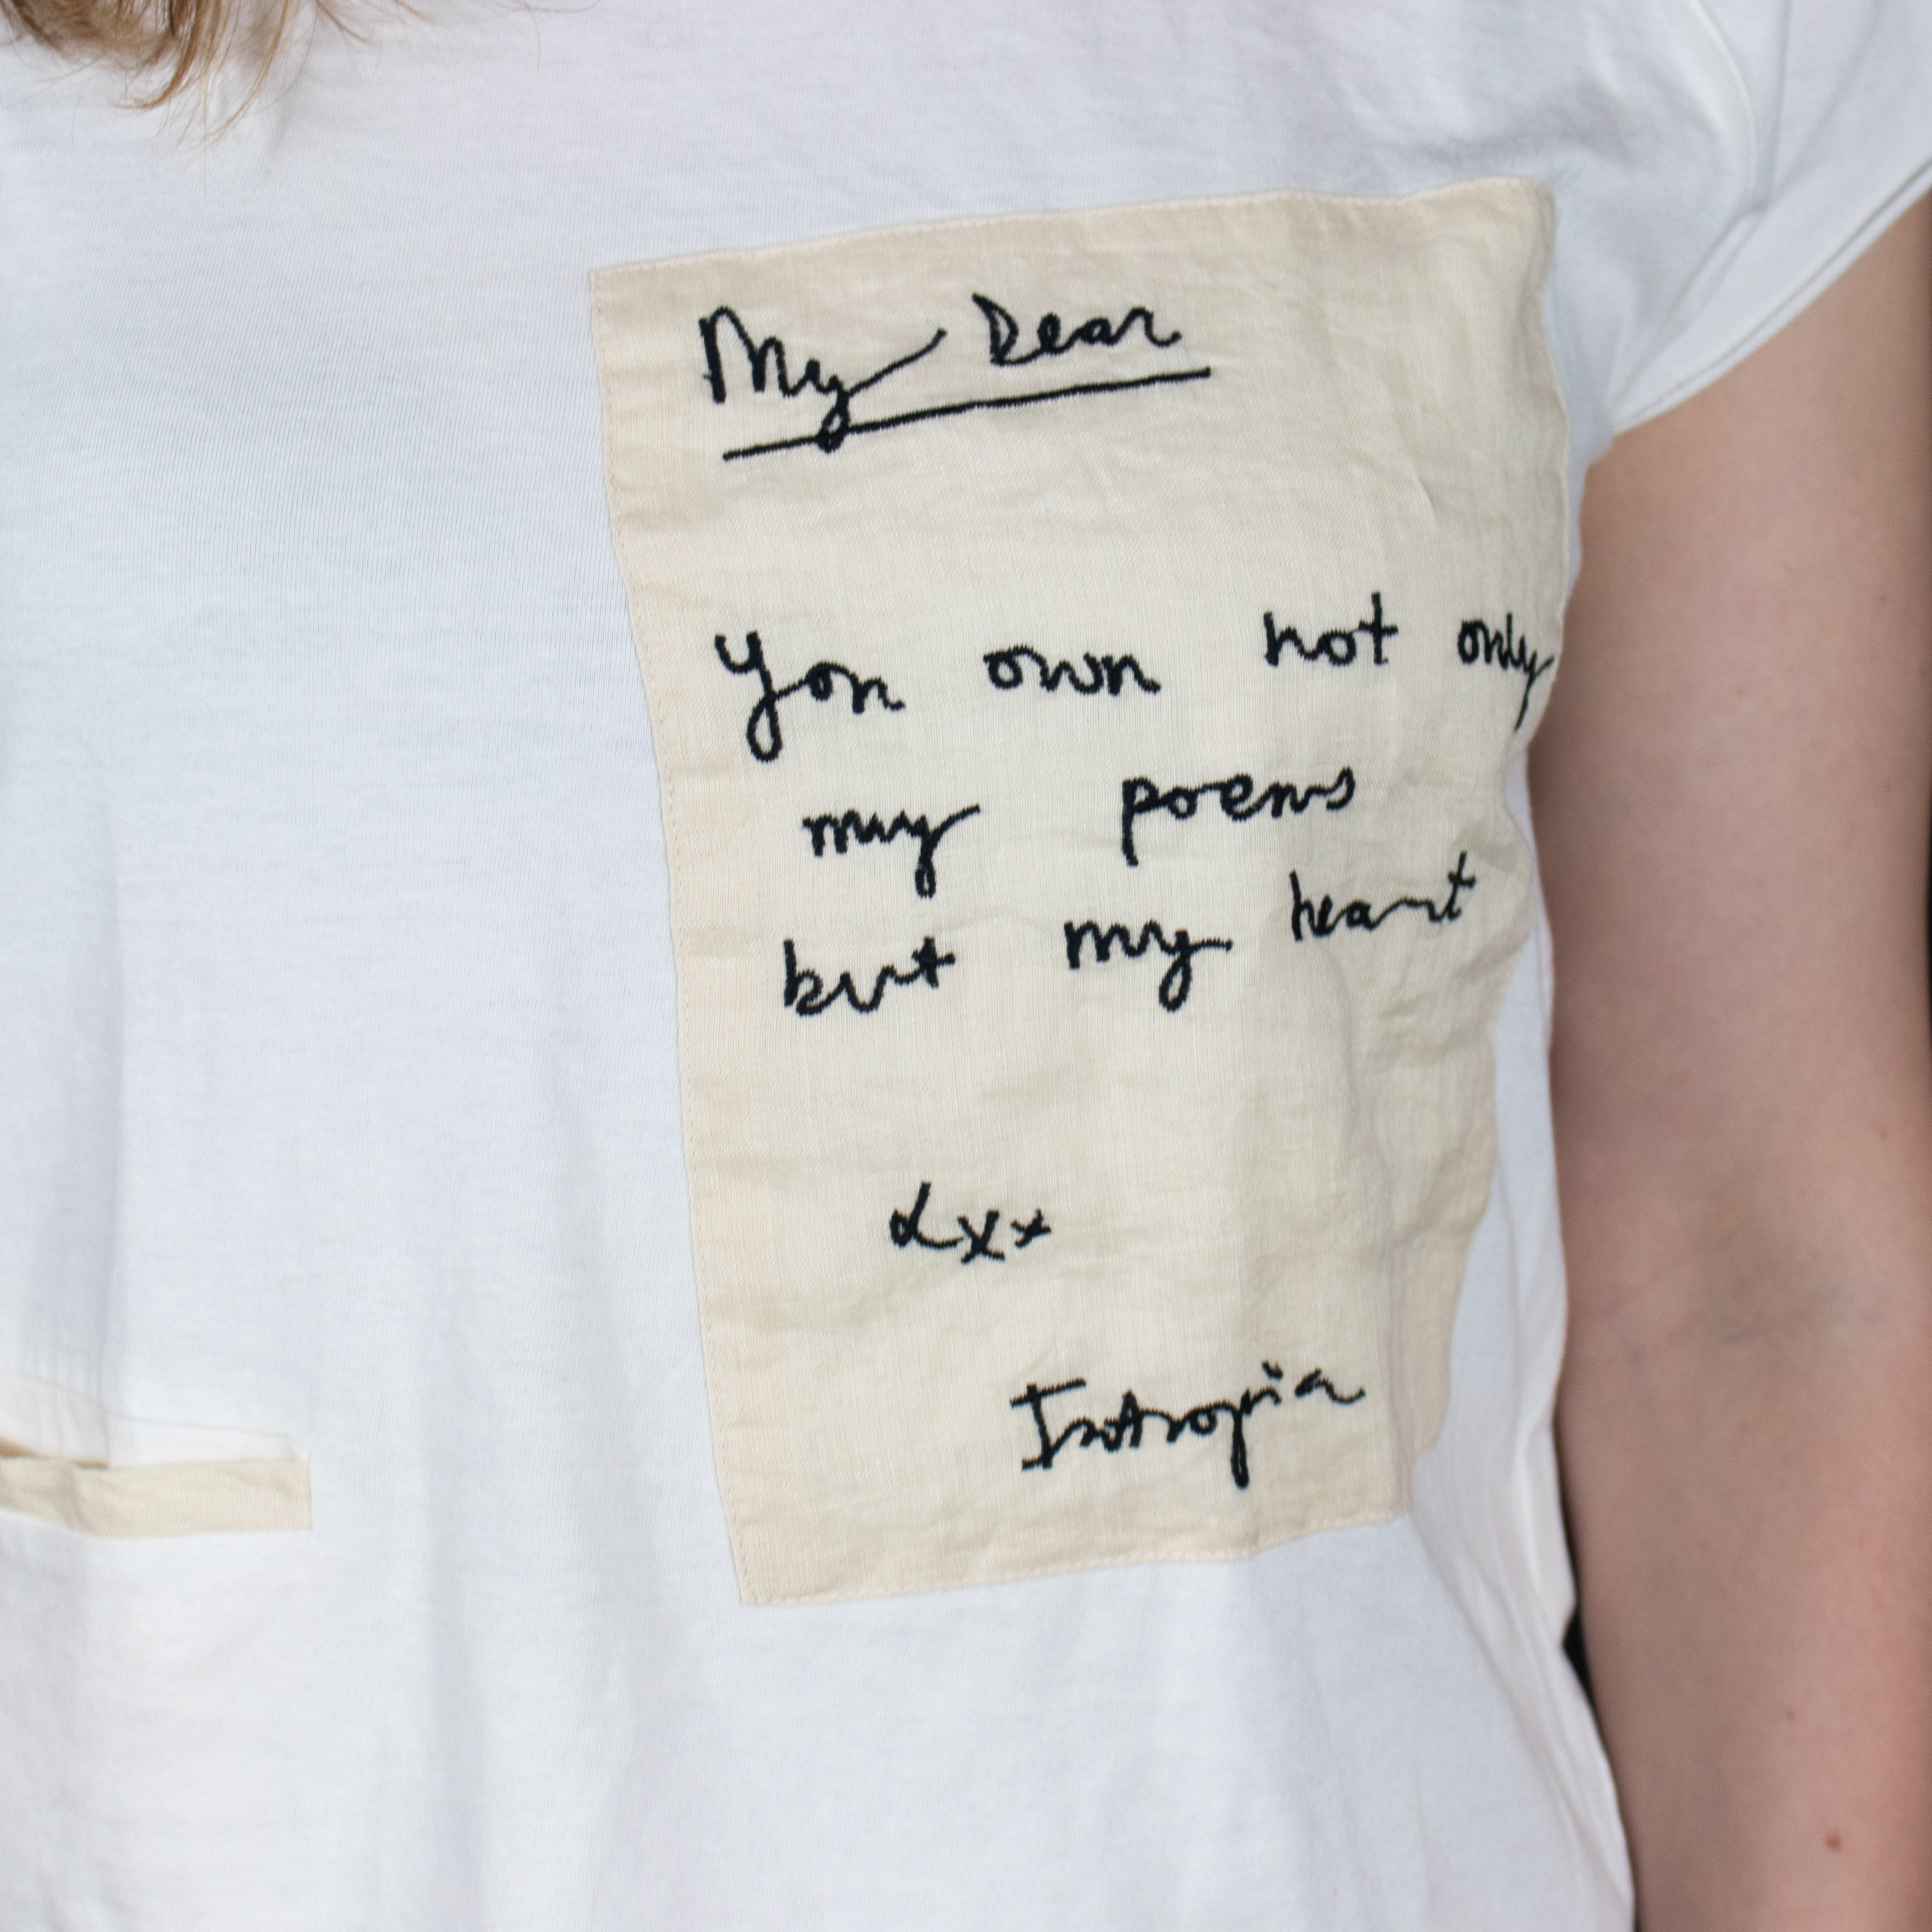 My Dear
You own not only
my poems
but my heart
Lxx
Intropia